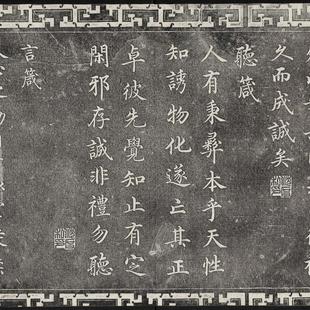 久而成誠矣
聽箴
人有秉彝本乎天性
知誘物化遂亡其正
卓彼先覺知止有定
閑邪存誠非禮勿聽
言箴